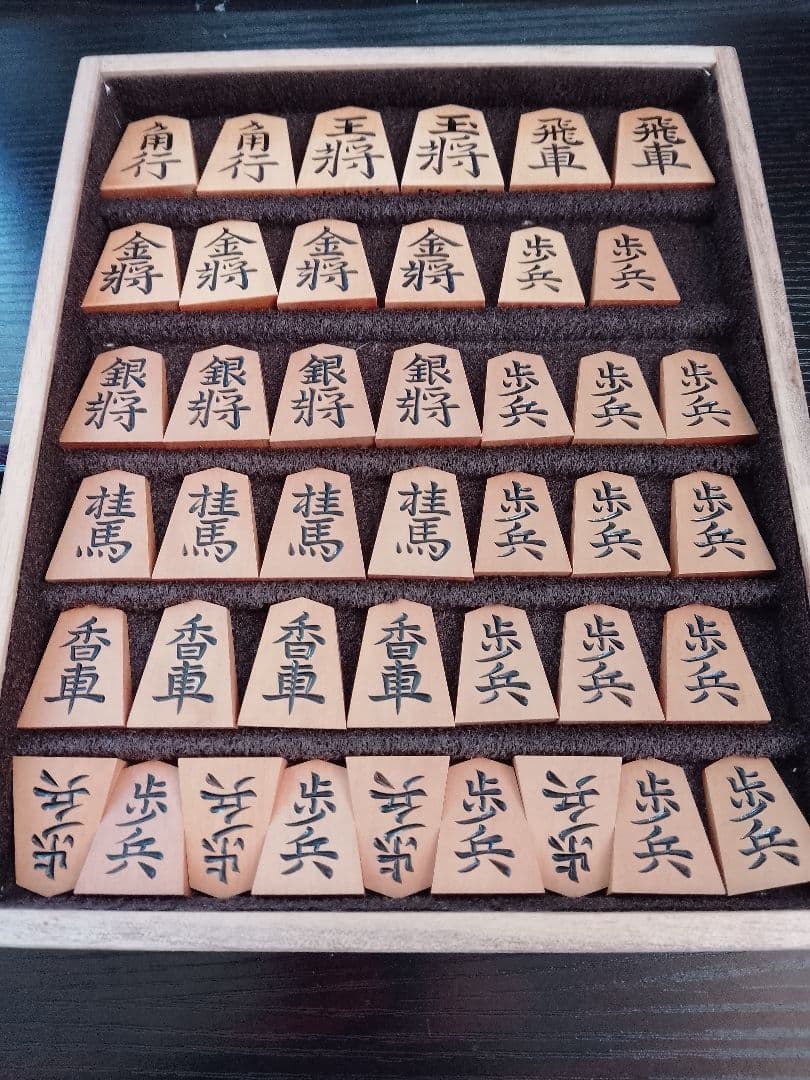 角行 角行 王将 玉将 飛車 飛車
金将 金将 金将 金将 歩兵 歩兵
銀将 銀将 銀将 銀将 歩兵 歩兵 歩兵
桂馬 桂馬 桂馬 桂馬 歩兵 歩兵 歩兵
香車 香車 香車 香車 歩兵 歩兵 歩兵
歩兵 歩兵 歩兵 歩兵 歩兵 歩兵 歩兵 歩兵 歩兵